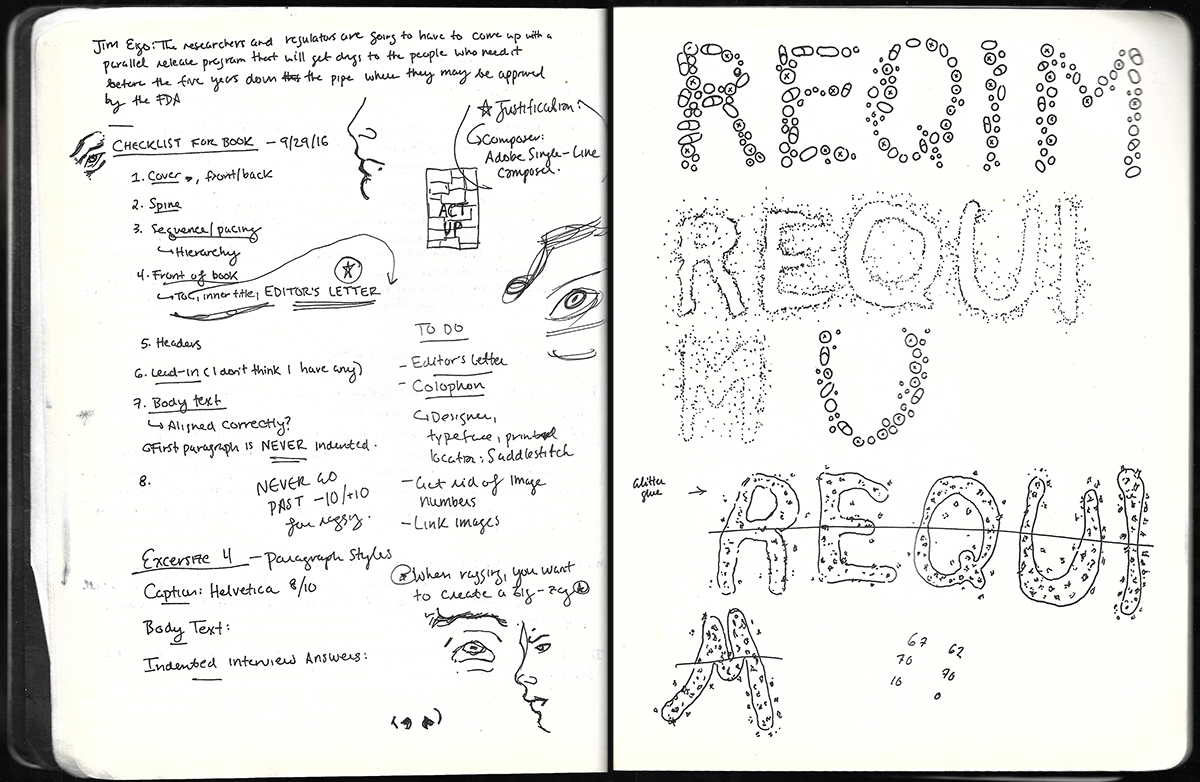 Jim Eigo: The researchers and regulators are going to have to come up with a
parallel release program that will get drugs to the people who need it
before the five years down the pipe when they may be approved
by the FDA
CHECKLIST FOR BOOK – 9/29/16
1. Cover, front/back
2. Spine
3. Sequence/pacing
↳Hierarchy
4. Front of book
↳TOC, inner title, EDITOR'S LETTER
5. Headers
6. Lead-in (I don't think I have any)
7. Body text
↳ Aligned correctly?
First paragraph is NEVER indented.
8.
NEVER GO
PAST -10/+10
for raggy.
Excersize 4 – Paragraph Styles
Caption: Helvetica 8/10
Body Text:
Indented interview Answers:
☆ Justification:
↳Composer:
Adobe Single-Line
Composer.
ACT
UP
TO DO
- Editor's Letter
- Colophon
↳Designer,
typeface, printed
location: Saddlestitch
- Get rid of Image
Numbers
- Link images
When ragging, you want
to create a zig-zag
REQIM
REQUI
M U
Glitter
glue →
REQUI
M
67
62
70
70
10
0